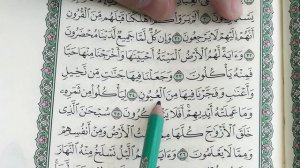 أَلَمْ يَرَوْا۟ كَمْ أَهْلَكْنَا قَبْلَهُم مِّنَ ٱلْقُرُونِ
أَنَّهُمْ إِلَيْهِمْ لَا يَرْجِعُونَ ٣١ وَإِن كُلٌّ لَّمَّا جَمِيعٌ لَّدَيْنَا مُحْضَرُونَ
٣٢ وَءَايَةٌ لَّهُمُ ٱلْأَرْضُ ٱلْمَيْتَةُ أَحْيَيْنَـٰهَا وَأَخْرَجْنَا مِنْهَا حَبًّا
فَمِنْهُ يَأْكُلُونَ ٣٣ وَجَعَلْنَا فِيهَا جَنَّـٰتٍ مِّن نَّخِيلٍ
وَأَعْنَـٰبٍ وَفَجَّرْنَا فِيهَا مِنَ ٱلْعُيُونِ ٣٤ لِيَأْكُلُوا۟ مِن ثَمَرِهِۦ
وَمَا عَمِلَتْهُ أَيْدِيهِمْ أَفَلَا ٣٥ سُبْحَـٰنَ ٱلَّذِى
خَلَقَ ٱلْأَزْوَٰجَ كُلَّهَا ٱلْأَرْضُ وَمِنْ أَنفُسِهِمْ
وَمِمَّا لَا يَعْلَمُونَ ٣٦ وَءَايَةٌ لَّهُمُ ٱلَّيْلُ نَسْلَخُ مِنْهُ ٱلنَّهَارَ